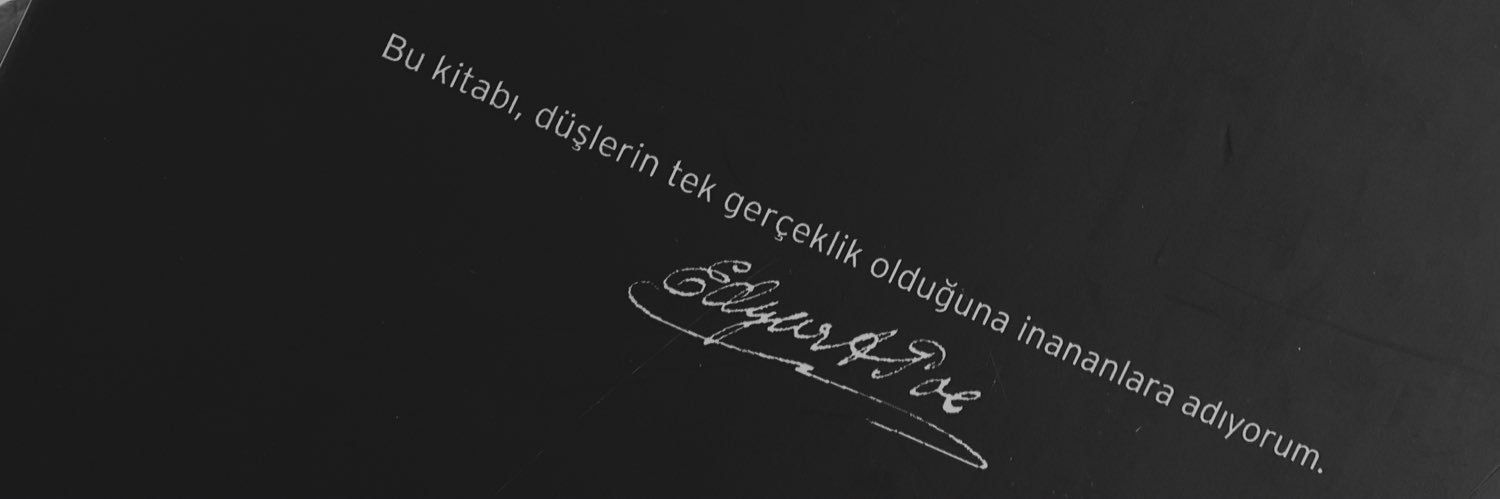 Bu kitabı, düşlerin tek gerçeklik olduğuna inananlara adıyorum.
Edgar A Poe